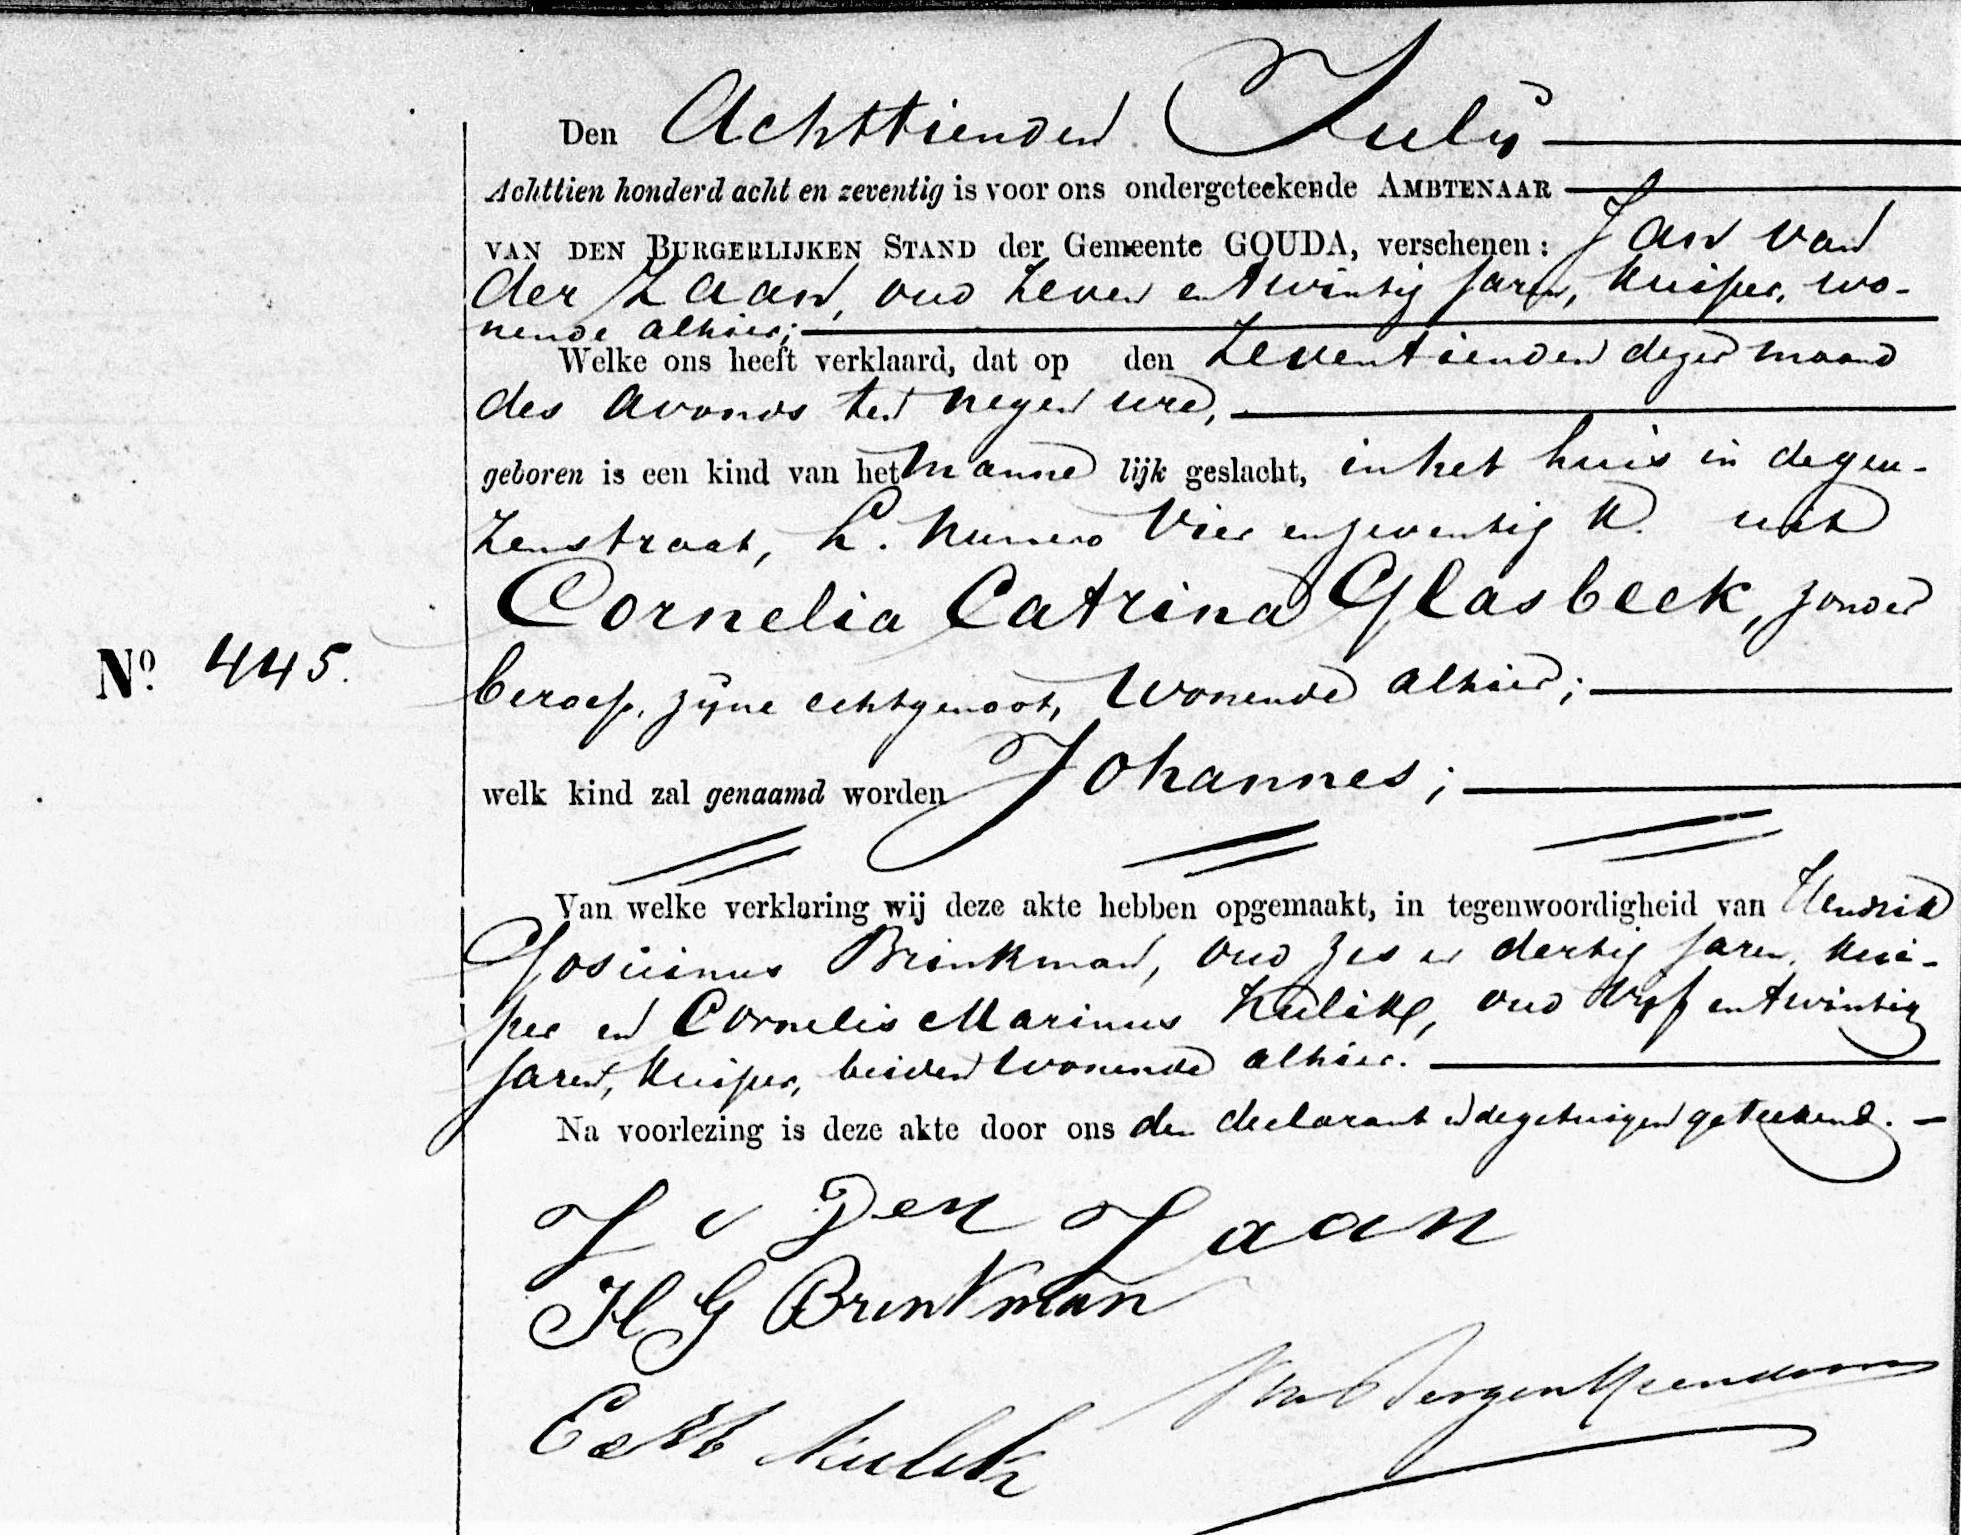 Den Achttienden July
Achttien honderd acht en zeventig is voor ons ondergeteekende AMBTENAAR
VAN DEN BURGERLIJKEN STAND der Gemeente GOUDA, verschenen: Jan van
der Zaan, oud zeven en twintig jaren, kuiper, wo-
nende alhier;
Welke ons heeft verklaard, dat op den zeventienden dezer maand
des avonds ten negen ure,
geboren is een kind van het manne lijk geslacht, in het huis in de Peu-
zenstraat, L. numero vier en zeventig k. uit
Cornelia Catrina Glasbeek, zonder
No. 445.
beroep, zijne echtgenoot, wonende alhier;
welk kind zal genaamd worden Johannes;
Van welke verklaring wij deze akte hebben opgemaakt, in tegenwoordigheid van Hendrik
Gosuinus Brinkman, oud zes en dertig jaren, kui-
per en Cornelis Marinus Kulik, oud vijf en twintig
jaren, kuiper, beiden wonende alhier.
Na voorlezing is deze akte door ons den declarant en de getuigen geteekend.
J v Der Zaan
H G Brinkman
van Bergen IJzendoorn
Kulik